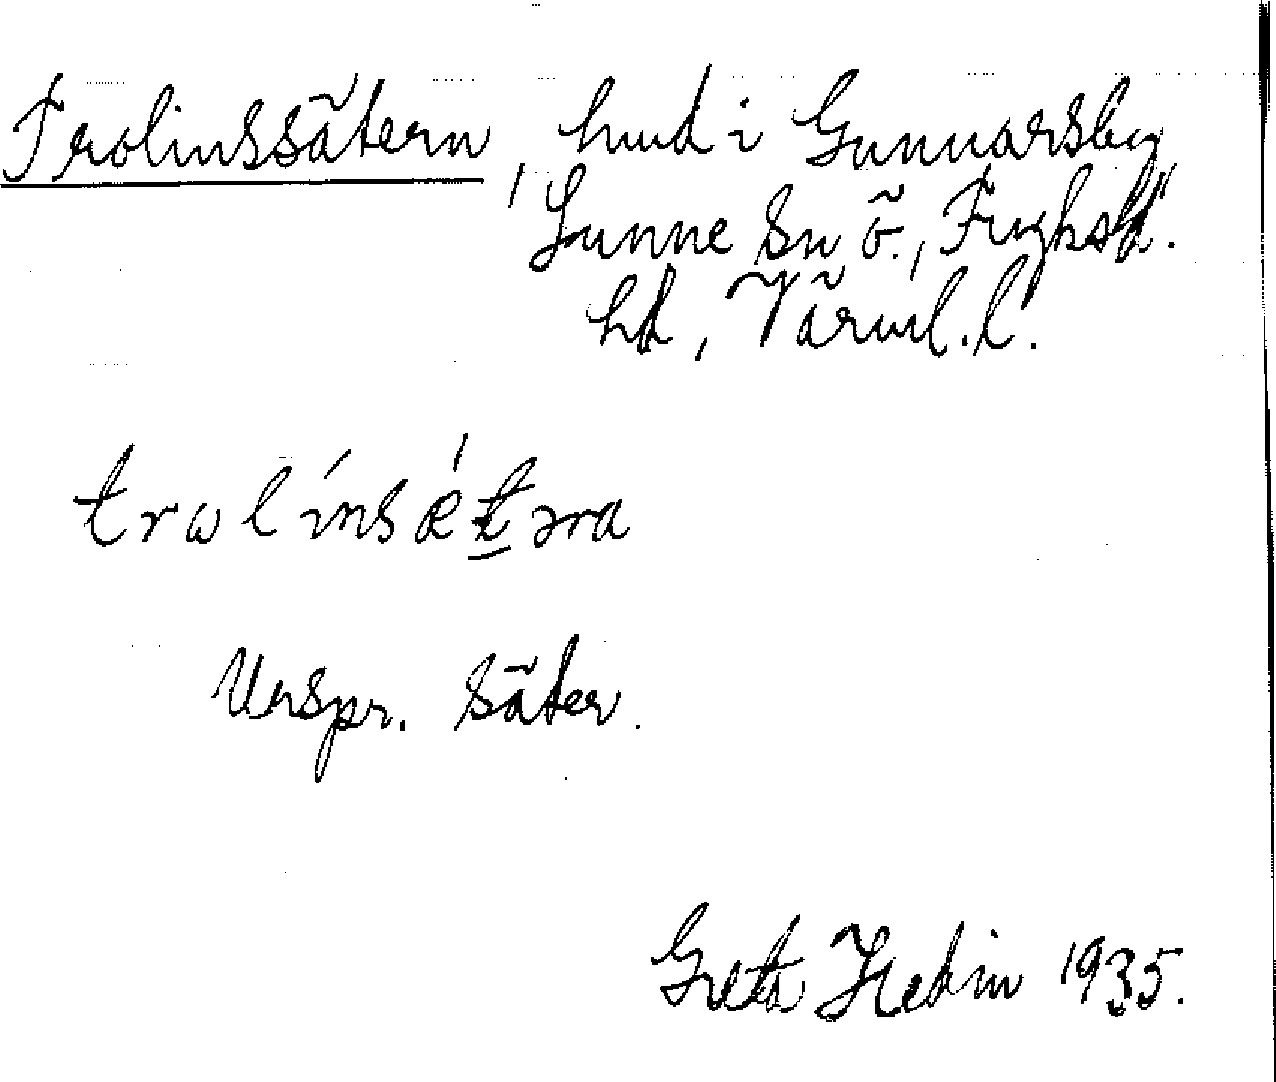 Trolinssätern, hmd i Gunnarsby
Sunne sn ö., Fryksd.
hd, Värml. l.
trωlínsǽt̲əra
Urspr. säter.
Greta Hedin 1935.